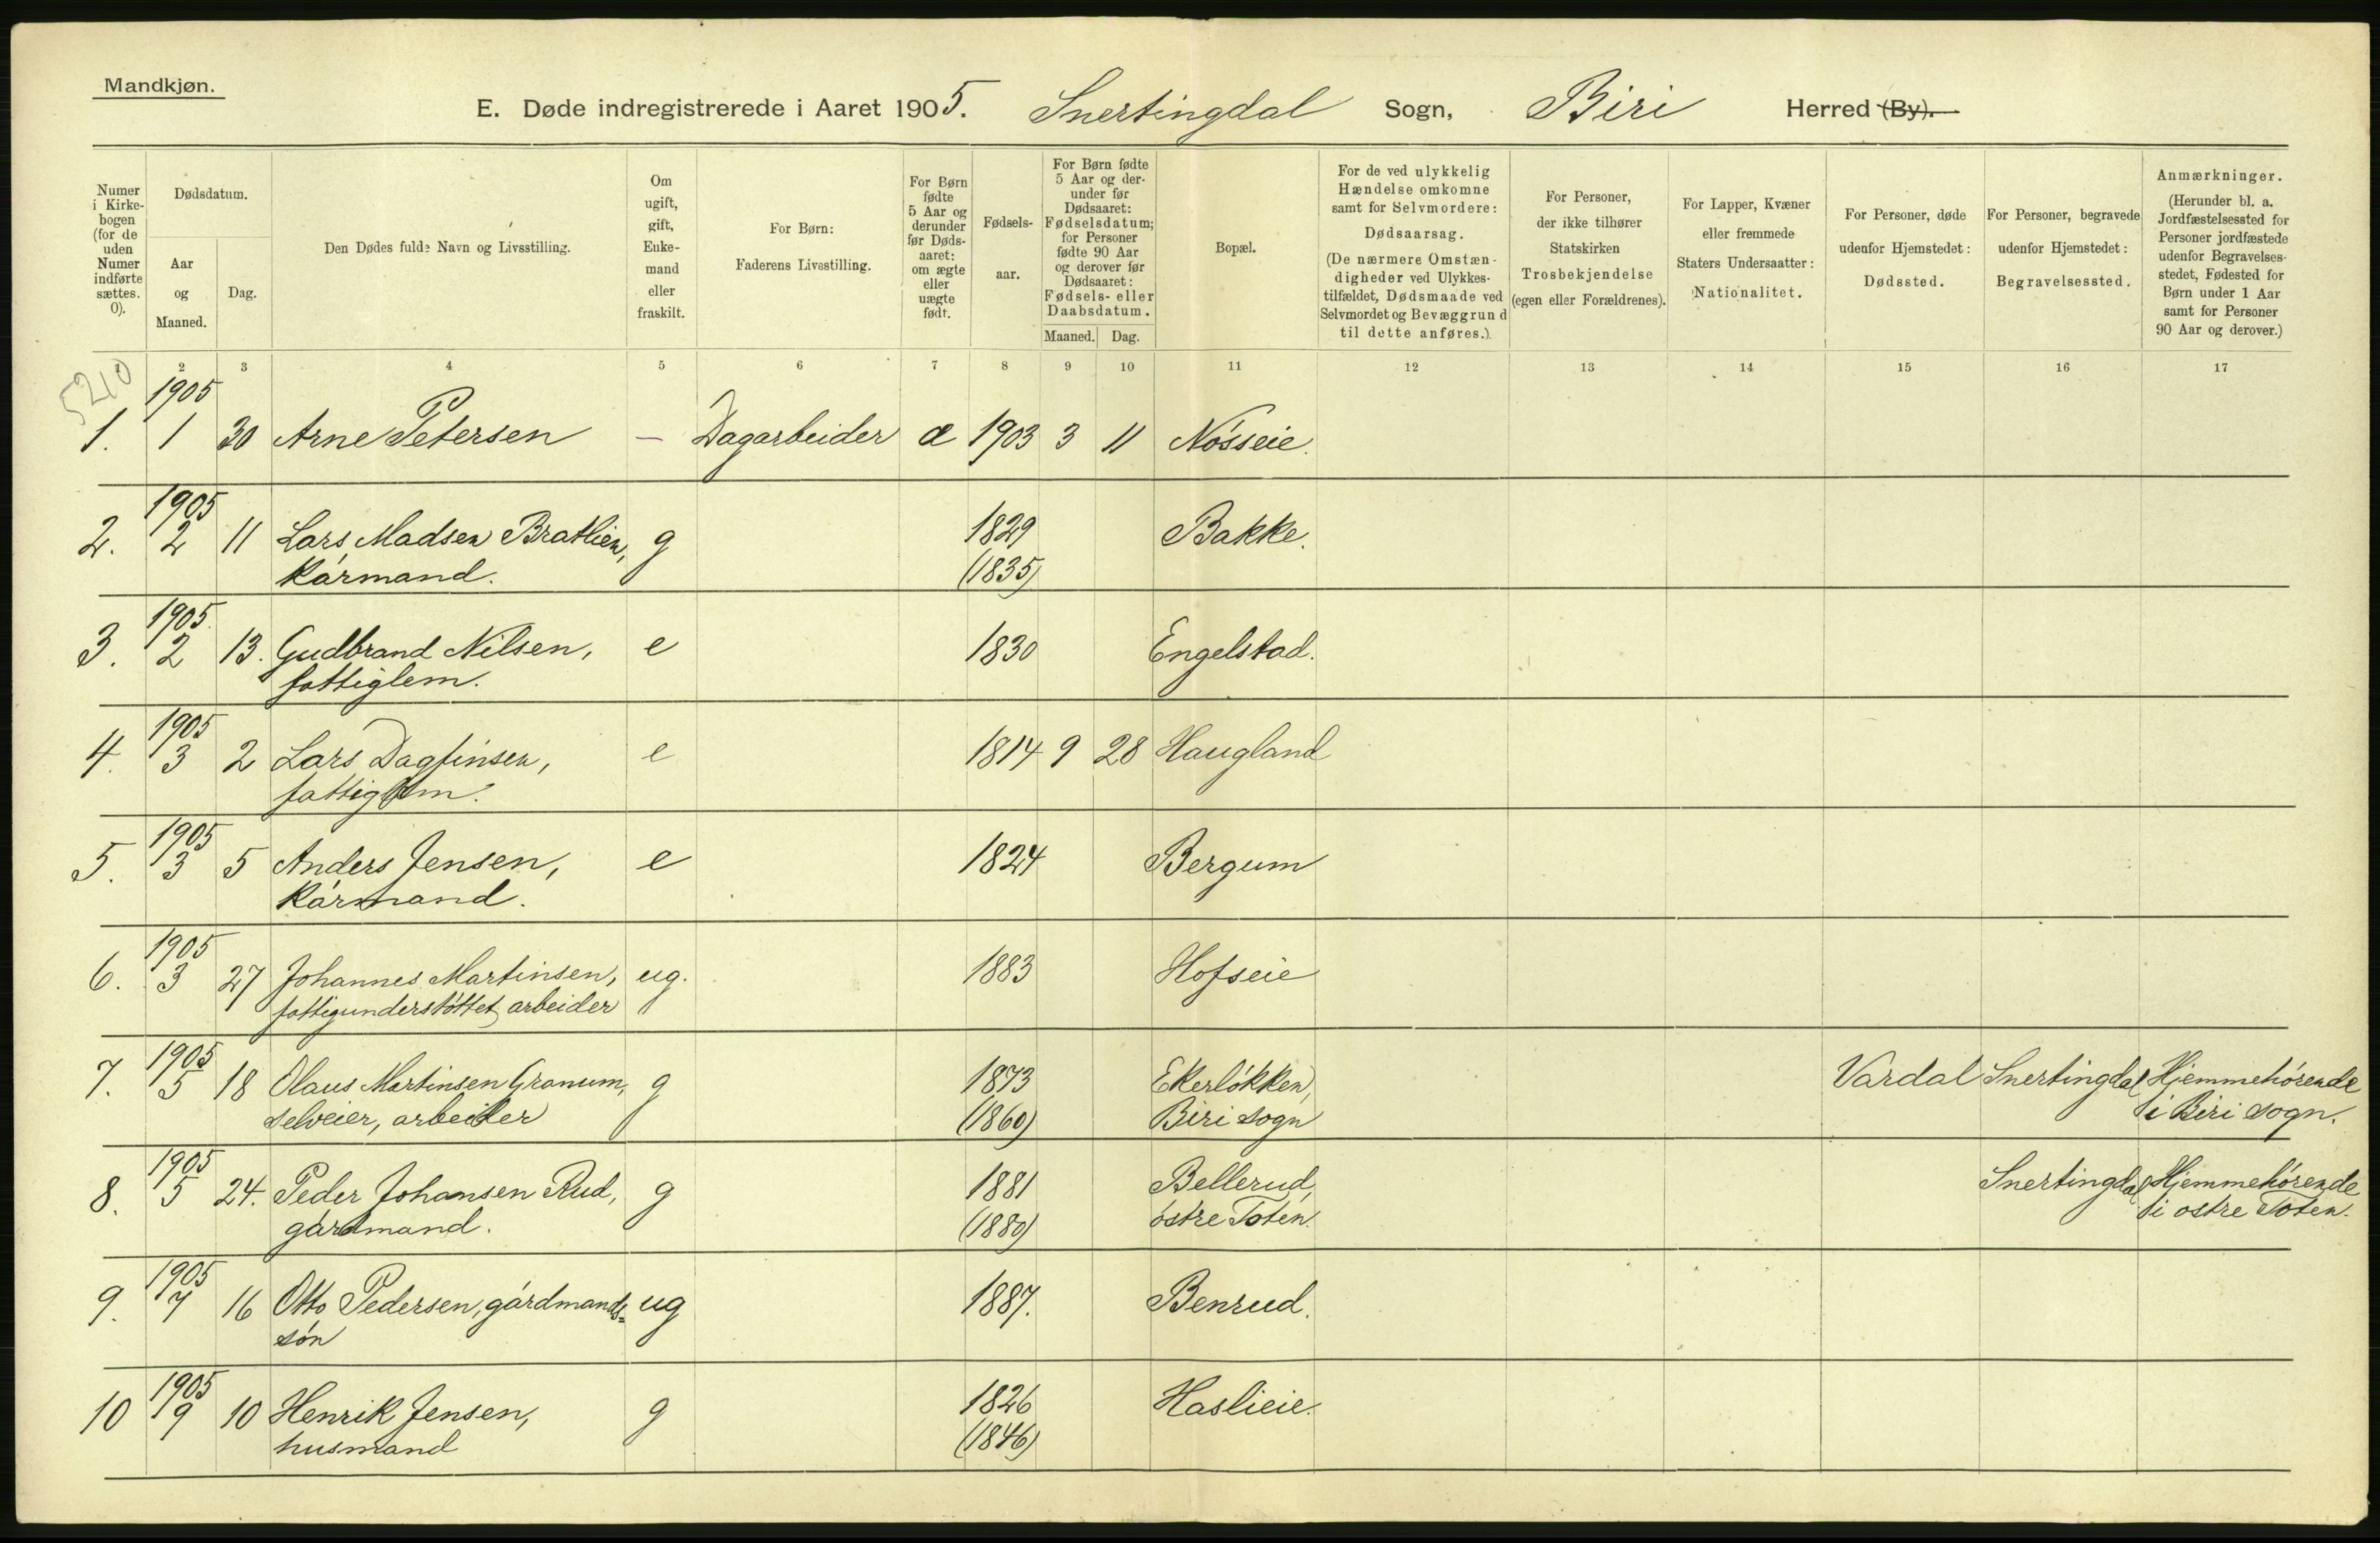 Mandkjøn.
E. Døde indregistrerede i Aaret 1905. Snertingdal Sogn, Biri Herred (By).
Numer i Kirkebogen (for de uden Numer indførte sættes. 0).
Dødsdatum.
Aar og Maaned.
Dag.
Den Dødes fulde Navn og Livsstilling.
Om ugift, gift, Enkemand eller fraskilt.
For Børn: Faderens Livsstilling.
For Børn fødte 5 Aar og derunder før Dødsaaret: om ægte eller uægte født.
Fødselsaar.
For Børn fødte 5 Aar og derunder før Dødsaaret: Fødselsdatum; for Personer fødte 90 Aar og derover før Dødsaaret: Fødsels- eller Daabsdatum.
Maaned. Dag.
Bopæl.
For de ved ulykkelig Hændelse omkomne samt for Selvmordere: Dødsaarsag. (De nærmere Omstændigheder ved Ulykkestilfældet, Dødsmaade ved Selvmordet og Bevæggrund til dette anføres.)
For Personer, der ikke tilhører Statskirken Trosbekjendelse (egen eller Forældrenes).
For Lapper, Kvæner eller fremmede Staters Undersaatter: Nationalitet.
For Personer, døde udenfor Hjemstedet: Dødssted.
For Personer, begravede udenfor Hjemstedet: Begravelsessted.
Anmærkninger. (Herunder bl. a. Jordfæstelsessted for Personer jordfæstede udenfor Begravelsesstedet, Fødested for Børn under 1 Aar samt for Personer 90 Aar og derover.)
2 3 4 5 6 7 8 9 10 11 12 13 14 15 16 17
5210
1905
1. 1 30 Arne Petersen — Dagarbeider æ 1903 3 11 Nósseie.
1905
2. 2 11 Lars Madsen Brathien, g 1829 Bakke.
Kármand. (1835)
1905
3. 2 13. Gudbrand Nilsen, e 1830 Engelstad.
fattiglem.
1905
4. 3 2 Lars Dagfinsen, e 1814 9 28 Haugland
fattiglem.
1905
5. 3 5 Anders Jensen, e 1824 Bergum
Kármand.
1905
6. 3 27 Johannes Martinsen, ug. 1883 Hofseie
fattigunderstóttet arbeider
1905
7. 5 18 Olaus Martinsen Granum, g 1873 Ekerlókken, Vardal Snertingdal Hjemmehórende
selveier, arbeider (1860) Biri sogn i Biri sogn.
1905
8. 5 24. Peder Johansen Rud, g 1881 Bellerud, Snertingdal Hjemmehórende
gárdmand. (1880) óstre Toten. i ostre Toten.
1905
9. 7 16 Otto Pedersen, gárdmands= ug 1887. Benrud.
són
1905
10 9 10 Henrik Jensen, g 1826 Haslieie.
husmand (1846)